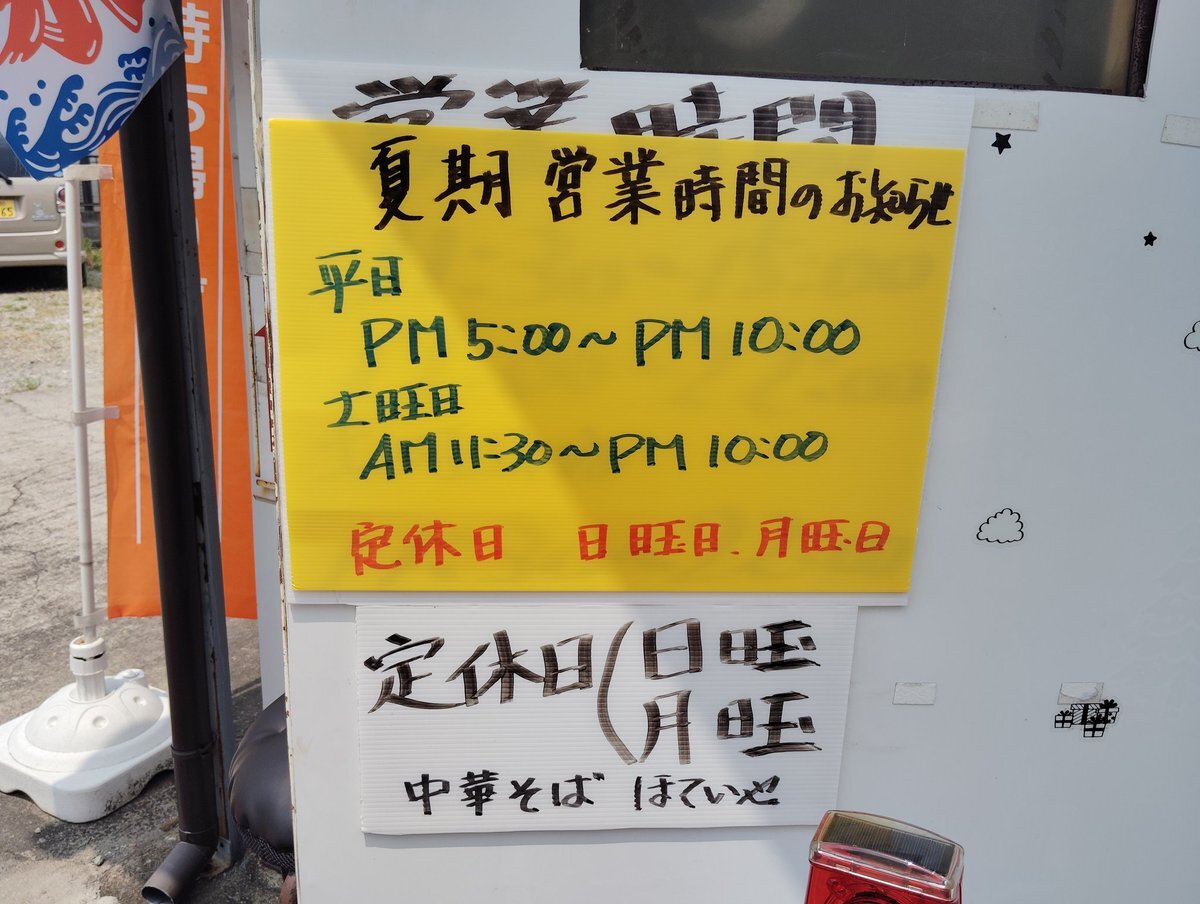 営業時間
夏期 営業時間のお知らせ
平日
PM 5:00～PM 10:00
土曜日
AM 11:30～PM 10:00
定休日 日曜日、月曜日
定休日（日曜
月曜
中華そば ほていや
65